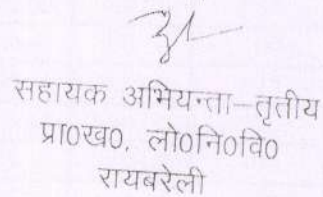 सहायक अभियन्ता—तृतीय
प्रा०ख०, लो०नि०वि०
रायबरेली